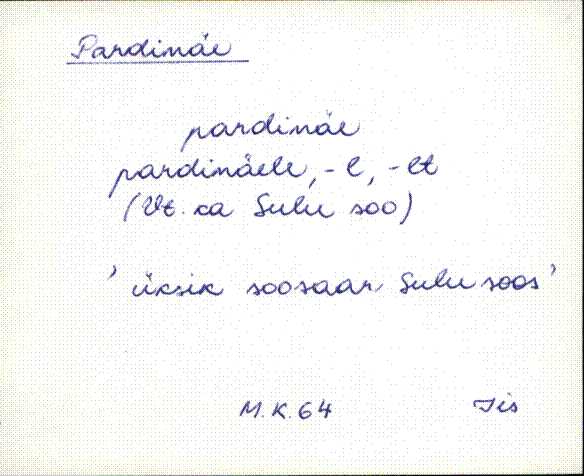 Pardinäe
pardinäe
pardinäele, -l, -lt
(Vt. ka Sulu soo)
' üksik soosaar Sulu soos '
M.K. 64 Iis